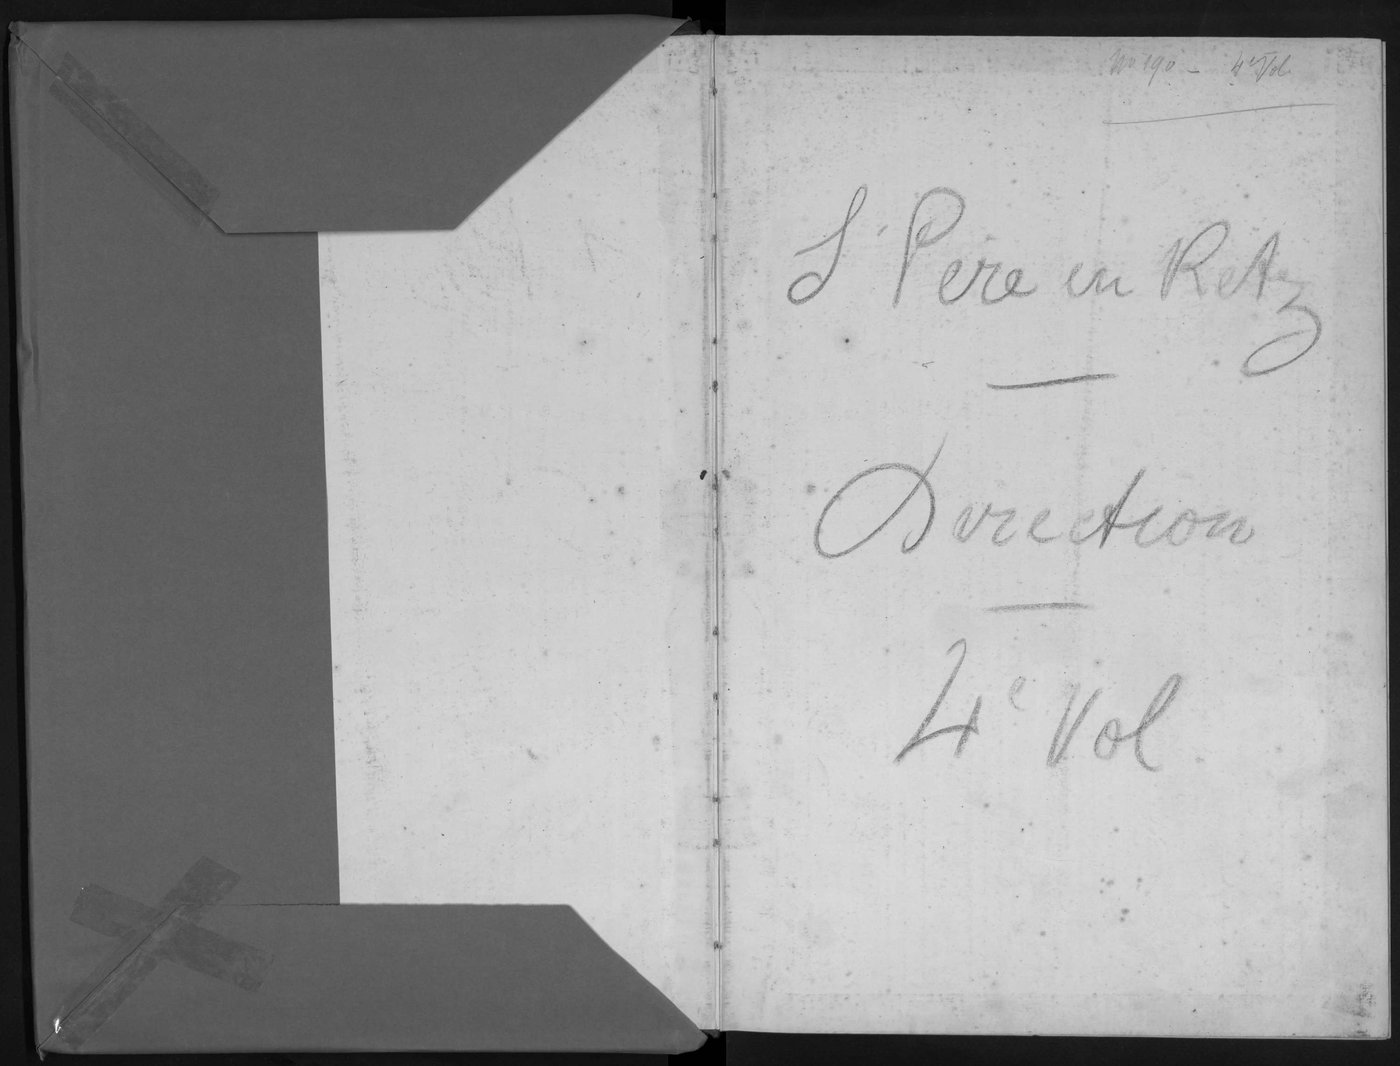 No 190 - 4e Vol
St Pere en Retz
Direction
4e Vol